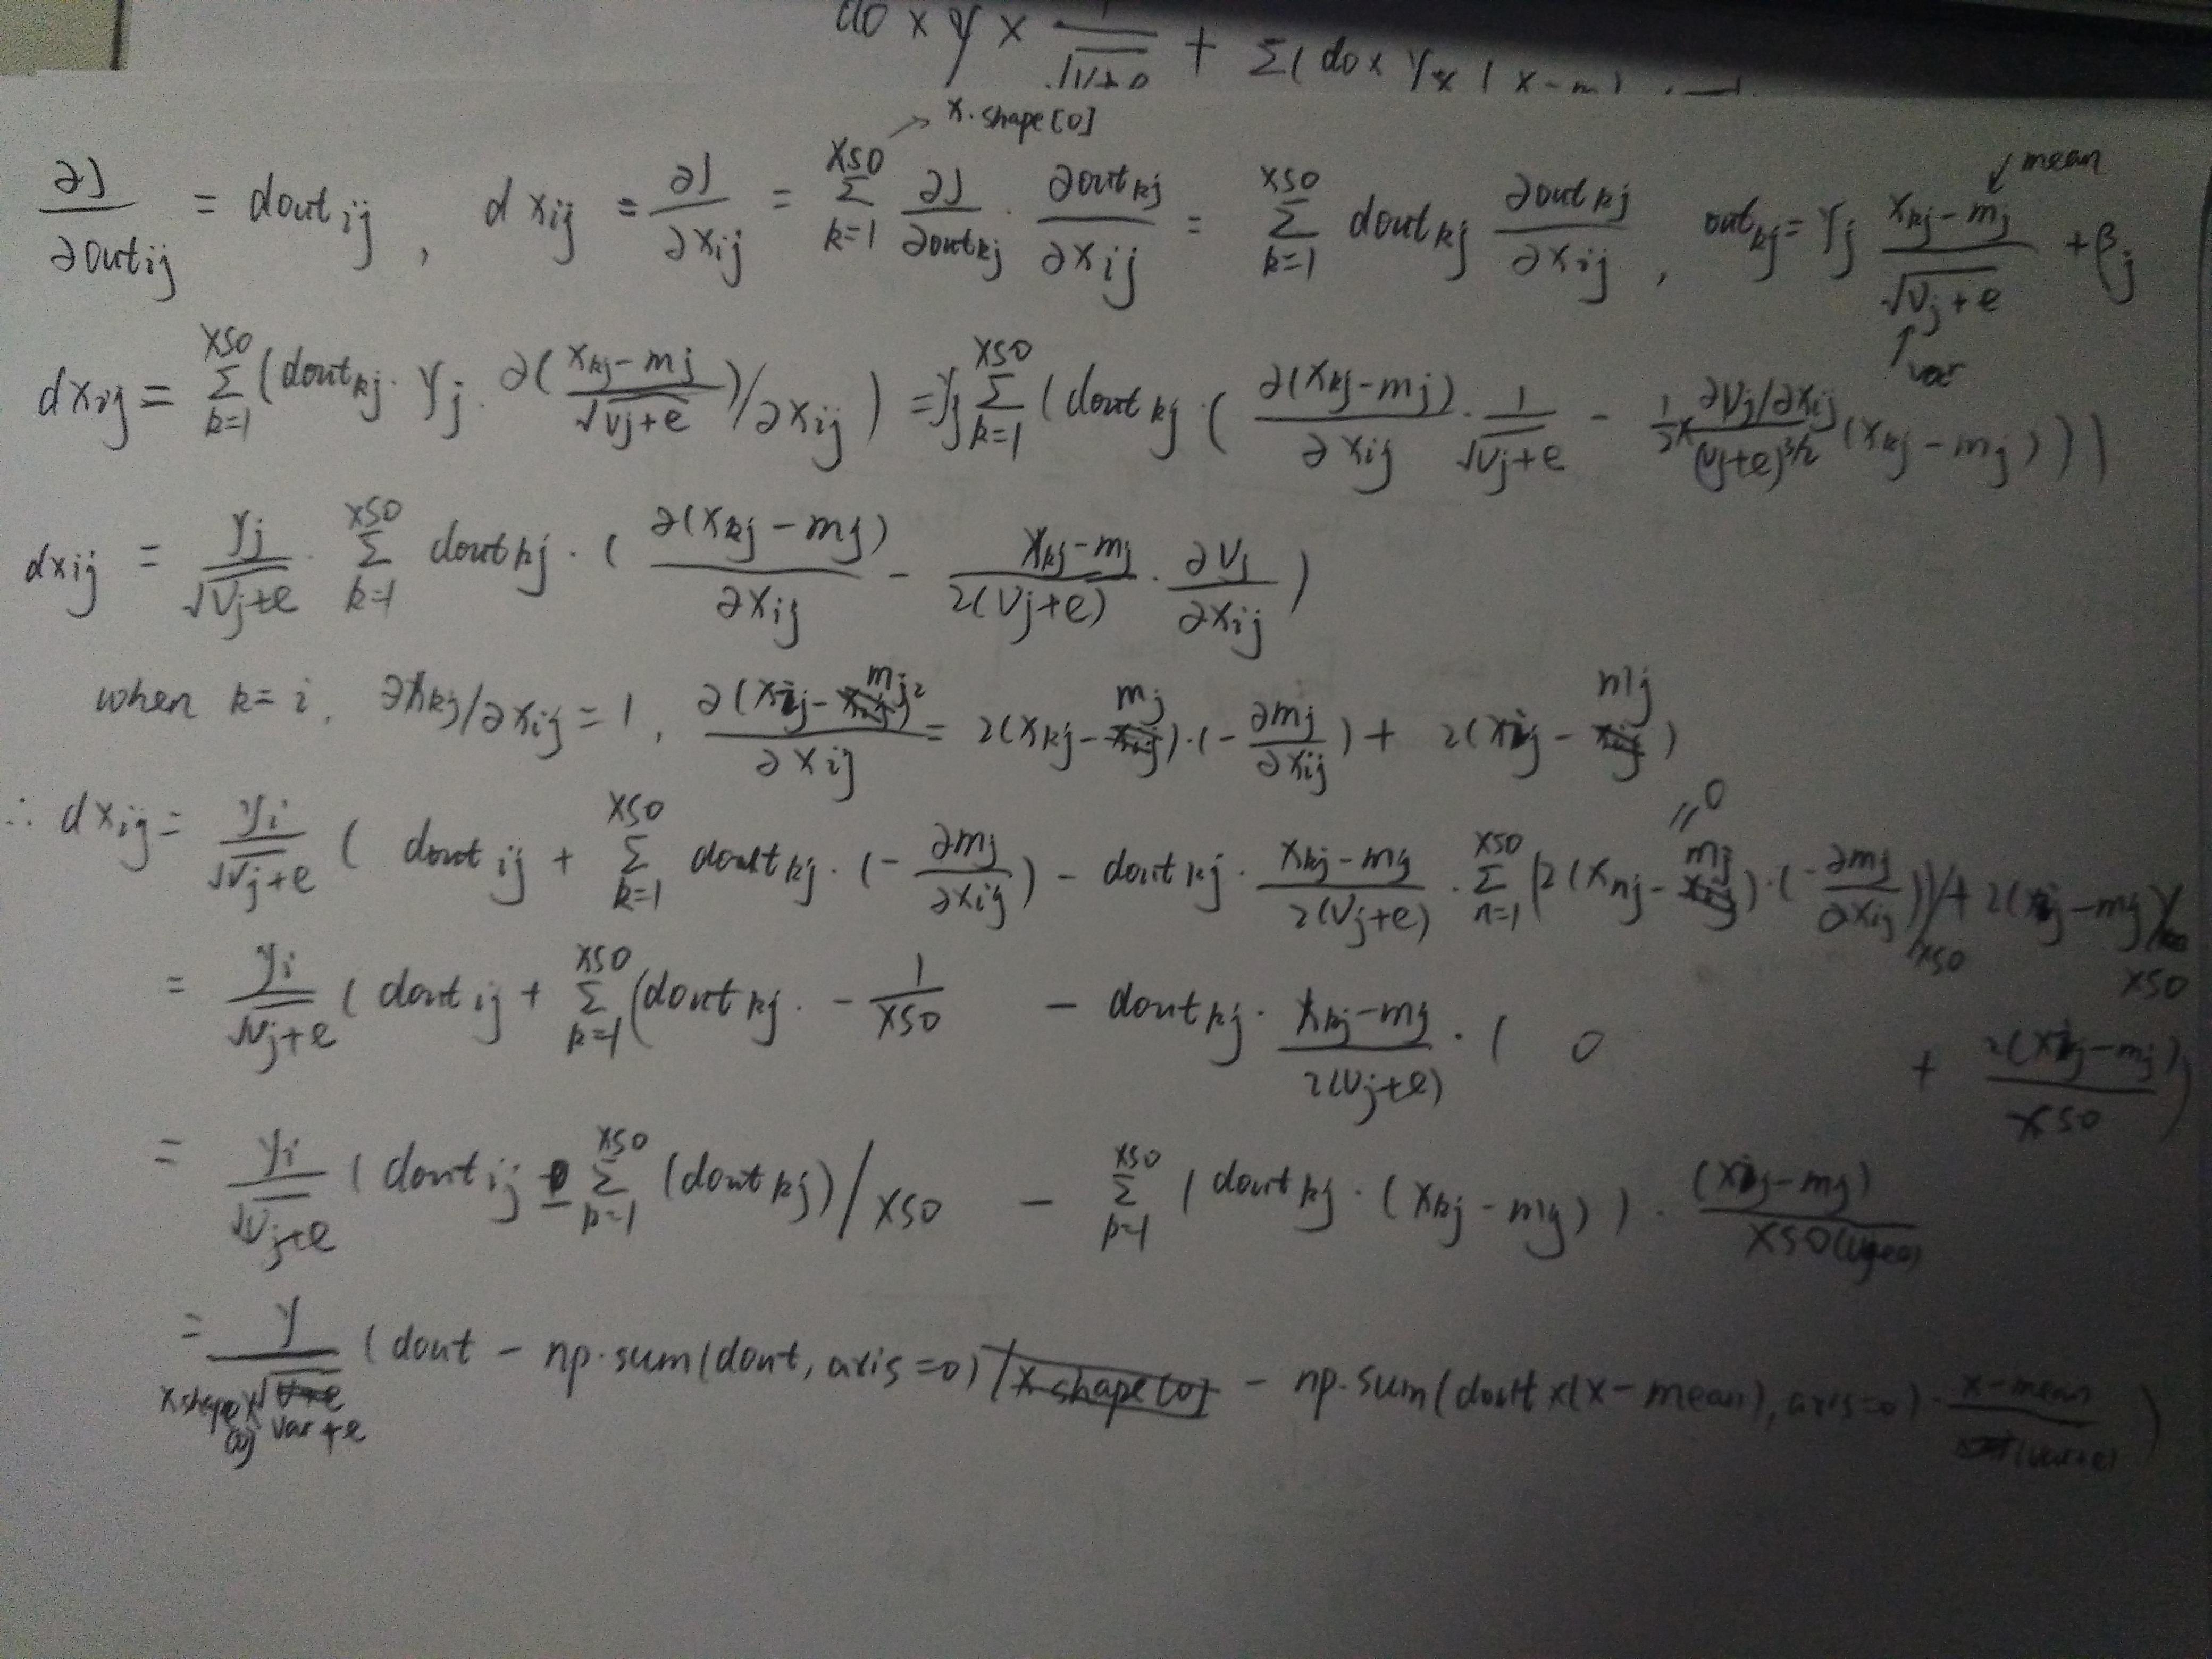 do × γ × 1/√(v+e) + Σ(do × γ × (x-m)
→ x.shape[0]
∂J/∂out_ij = dout_ij , dx_ij = ∂J/∂x_ij = Σ_{k=1}^{xs0} ∂J/∂out_kj · ∂out_kj/∂x_ij = Σ_{k=1}^{xs0} dout_kj ∂out_kj/∂x_ij , out_kj = γ_j (x_kj - m_j)/√(v_j+e) + β_j
mean
var
dx_ij = Σ_{k=1}^{xs0} (dout_kj · γ_j · ∂((x_kj - m_j)/√(v_j+e))/∂x_ij) = γ_j Σ_{k=1}^{xs0} (dout_kj · (∂(x_kj - m_j)/∂x_ij · 1/√(v_j+e) - 1/2 × (∂v_j/∂x_ij)/(v_j+e)^{3/2} (x_kj - m_j)))
dx_ij = γ_j/√(v_j+e) · Σ_{k=1}^{xs0} dout_kj · (∂(x_kj - m_j)/∂x_ij - (x_kj - m_j)/2(v_j+e) · ∂v_j/∂x_ij)
when k=i, ∂x_kj/∂x_ij = 1, ∂(x_ij - m_j)²/∂x_ij = 2(x_kj - m_j)·(-∂m_j/∂x_ij) + 2(x_ij - m_j)
∴ dx_ij = γ_i/√(v_j+e) (dout_ij + Σ_{k=1}^{xs0} dout_kj · (-∂m_j/∂x_ij) - dout_kj · (x_kj - m_j)/2(v_j+e) · Σ_{n=1}^{xs0} (2(x_nj - m_j)·(-∂m_j/∂x_ij))/xs0 + 2(x_ij - m_j)/xs0
=0
= γ_i/√(v_j+e) (dout_ij + Σ_{k=1}^{xs0} (dout_kj · -1/xs0 - dout_kj · (x_kj - m_j)/2(v_j+e) · ( 0 + 2(x_ij - m_j)/xs0 )
= γ_i/√(v_j+e) (dout_ij - Σ_{k=1}^{xs0} (dout_kj)/xs0 - Σ_{k=1}^{xs0} (dout_kj · (x_kj - m_j)) · (x_ij - m_j)/xs0(v_j+e)
= γ/(x.shape[0] × √(var+e)) (dout - np.sum(dout, axis=0) /x.shape[0] - np.sum(dout × (x - mean), axis=0) · (x - mean)/(var+e) )